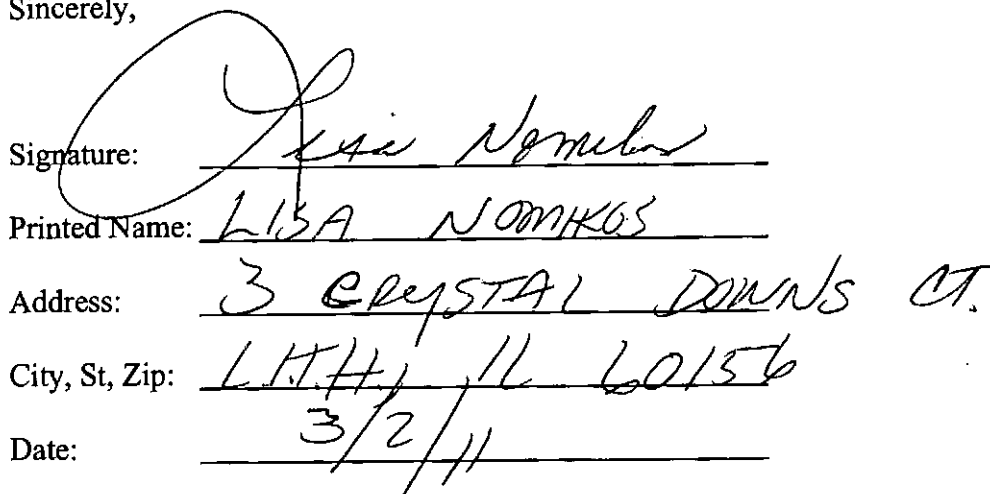 Sincerely,
Signature: Lisa Nomikos
Printed Name: LISA NOMIKOS
Address: 3 CRYSTAL DOWNS CT.
City, St, Zip: L.I.T.H., IL 60156
Date: 3/2/11